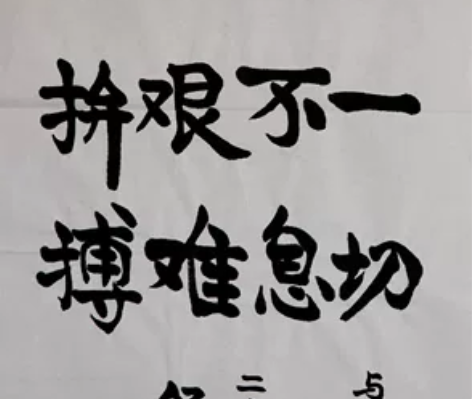 一切
不息
艰难
拚搏
与
二